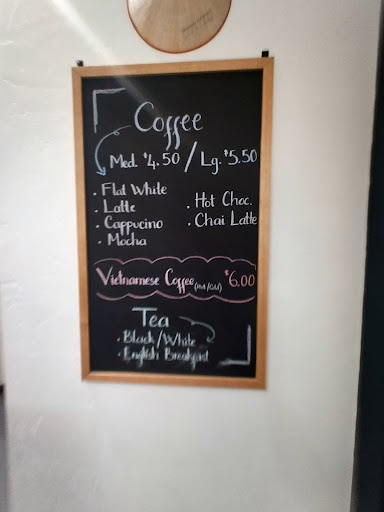 Coffee
Med. $4.50 / Lg. $5.50
• Flat White
• Latte
• Cappucino
• Mocha
• Hot Choc.
• Chai Latte
Vietnamese Coffee $6.00
Tea
• Black/White
• English Breakfast